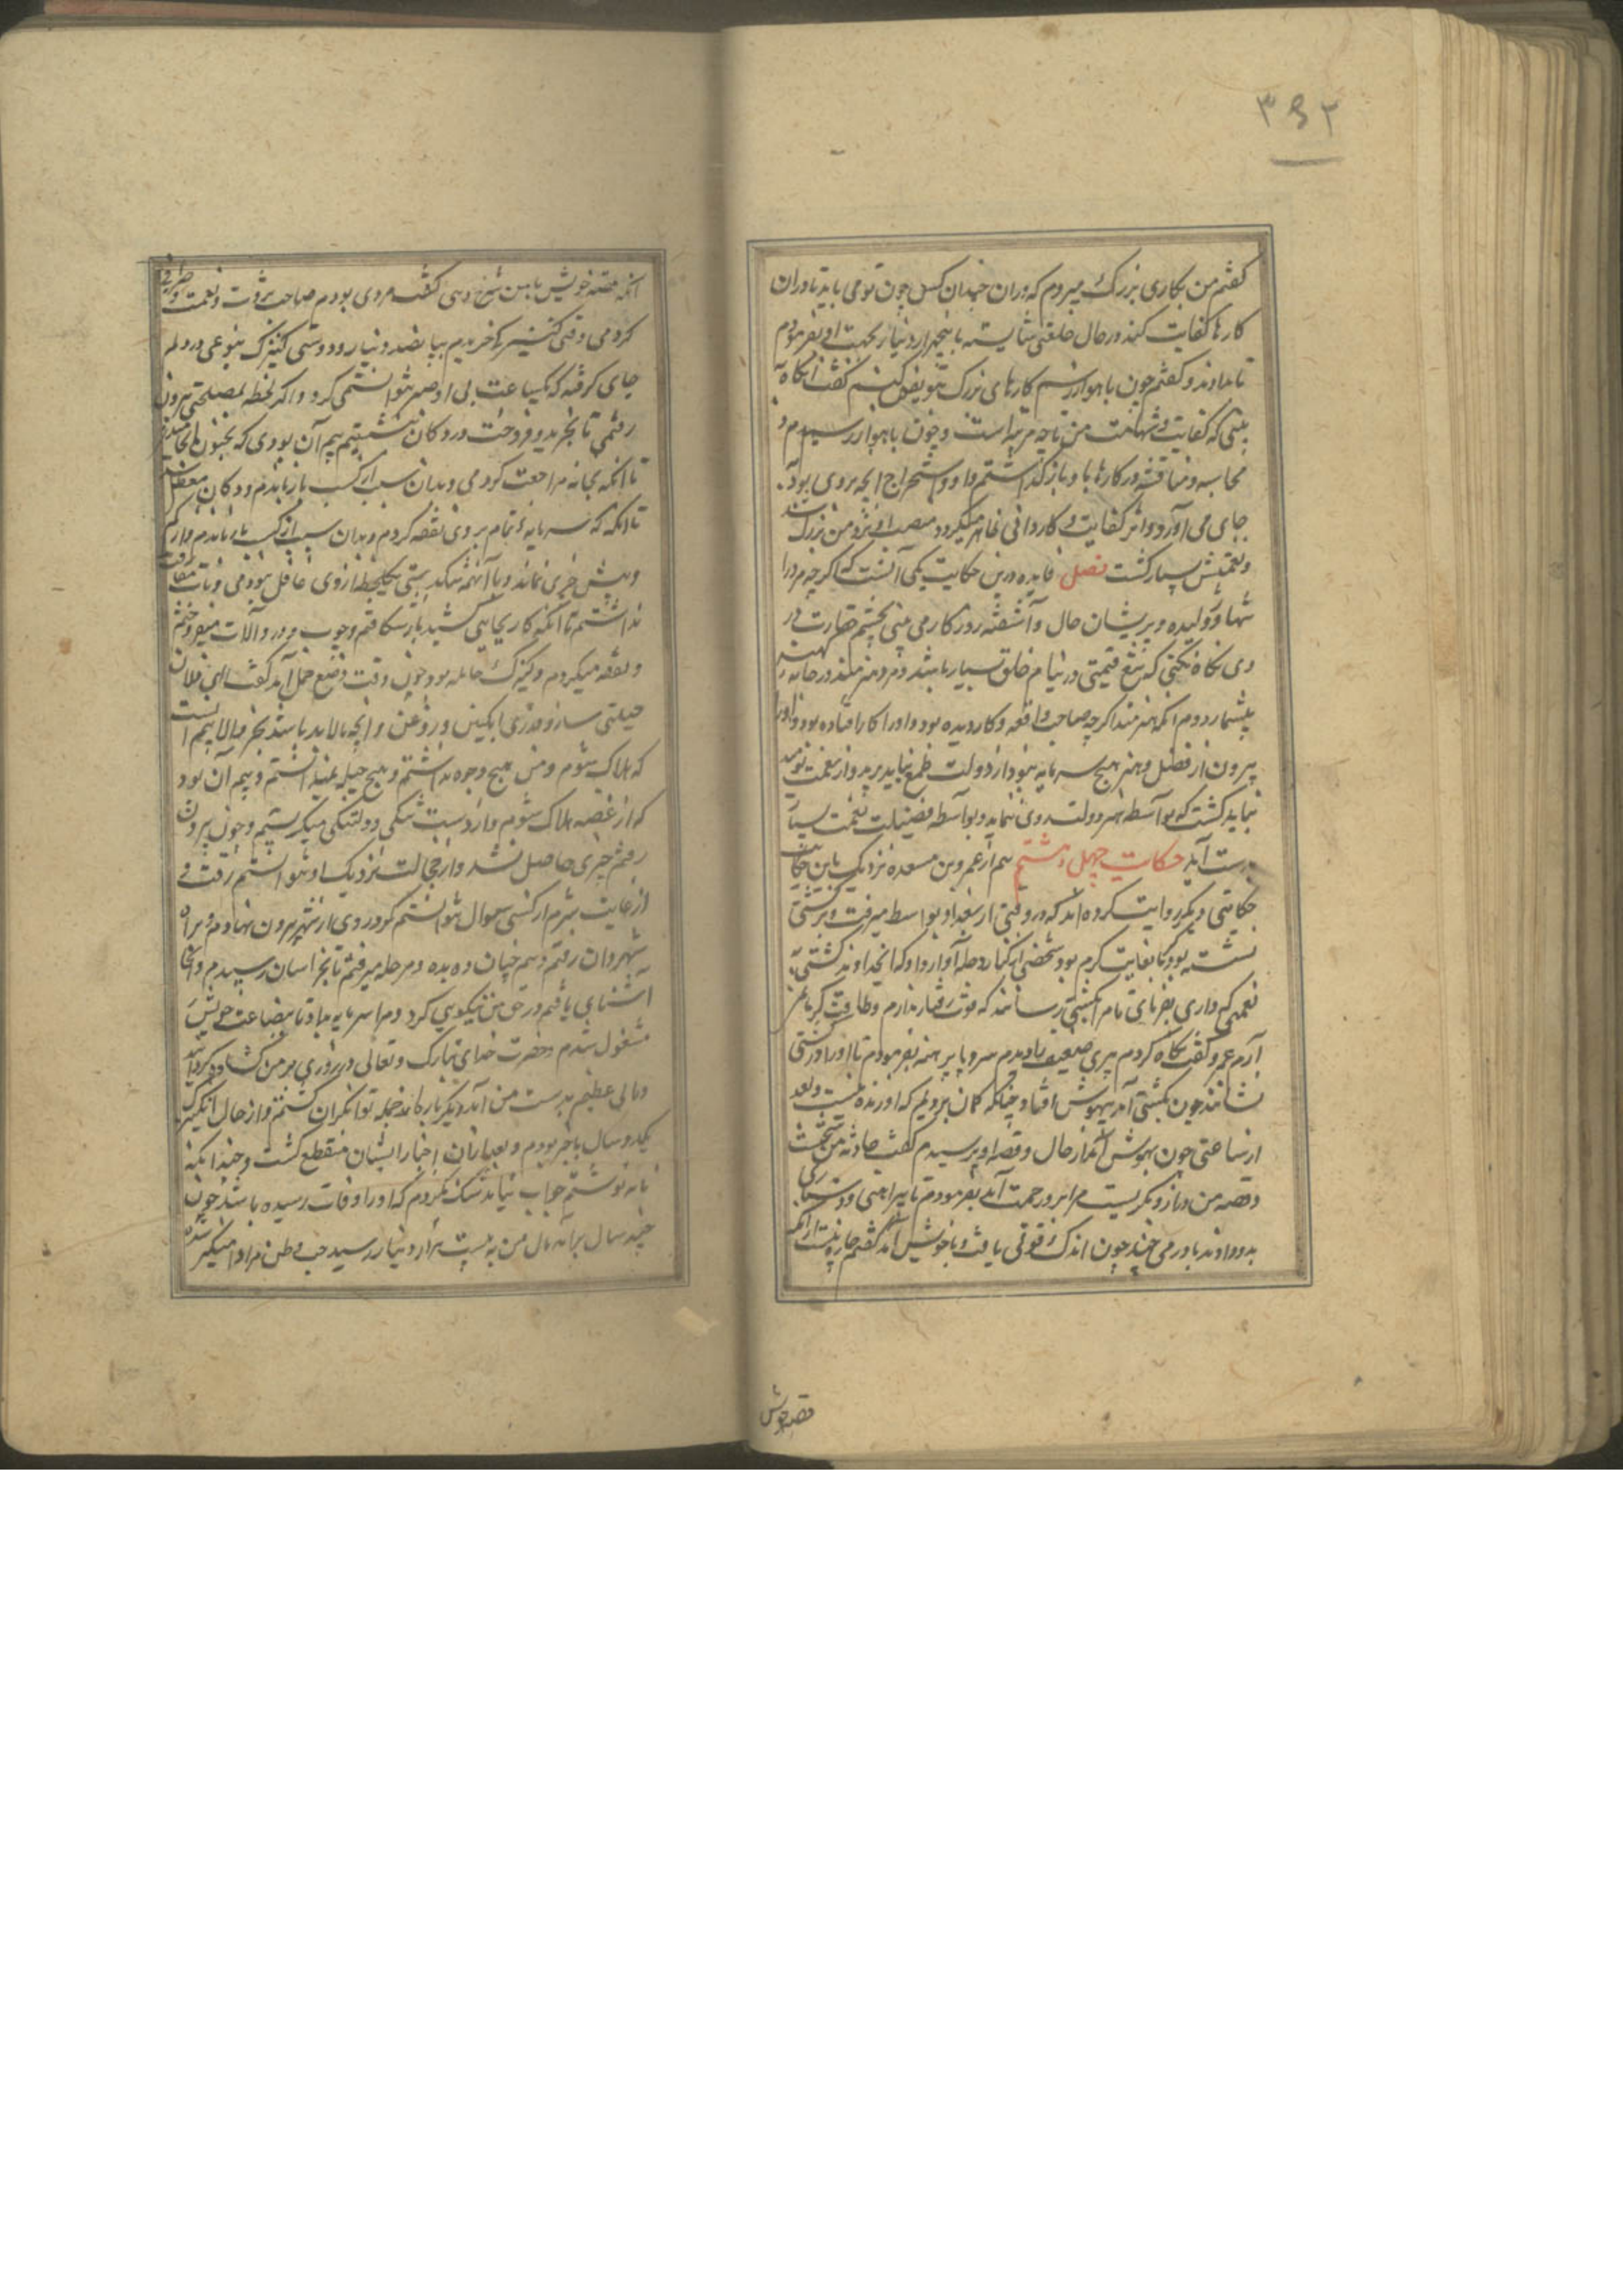 ۳۶۲
گفتم من بکاری بزرگ میروم که دران چندان کس چون تو می باید تا دران
کارها کفایت کند در حال خلعتی شایسته با پنجهزار دینار بجهت او بفرمودم
تا بدادند و گفتم چون باهواز رسم کارهای بزرگ بتو تفویض کنم گفت آنکاه
بینی که کفایت و شهامت من تا چه مرتبه است و چون باهواز رسیدم و
محاسبه و مناقشه در کارها با و باز گذاشتم و او استخراج آنچه بر وی بود
بجای می آورد و اثر کفایت و کاردانی ظاهر میکرد و منصب او نزد من بزرگ شد
و نعمتش بسیار گشت فصل فایده درین حکایت یکی آنست که اگر چه مرد را
تنها و ژولیده و پریشان حال و آشفته روزکار می بینی بچشم حقارت در
وی نکاه نکنی که تیغ قیمتی در نیام خلق بسیار باشد و مرد هنرمند در جامه کهنه
بیشمار دوم آنکه هنرمند اگر چه صاحب واقعه و کار دیده بود و او را کار افتاده بود و او را
بیرون از فضل و هنر هیچ سرمایه نبود از دولت طمع نباید برید و از نعمت نومید
نباید گشت که بواسطه هنر دولت روی نماید و بواسطه فضیلت نعمت بسیار
بدست آید حکایت چهل و هشتم هم از عمرو بن مسعده نزدیک باین حکایت
حکایتی دیگر روایت کرده اند که در وقتی از بغداد بواسط میرفت و بر کشتی
نشسته بود و کرما بغایت کرم بود شخصی از کنار دجله آواز داد که ای خداوند کشتی
نعمتی که داری بفرمای تا مرا بکشتی رسانند که قوت رفتار ندارم و طاقت کرما
آرم عمرو گفت نکاه کردم پیری ضعیف را دیدم سر و پا برهنه بفرمودم تا او را در کشتی
نشاندند چون بکشتی آمد بیهوش افتاد چنانکه گمان بردیم که او زنده نیست و بعد
از ساعتی چون بهوش آمد از حال و قصه او پرسیدم گفت حادثه من سخت
و قصه من دراز و بگریست مرا برو رحمت آمد بفرمودم تا پیراهنی و دستاری
بدو دادند با درمی چند چون اندک قوتی یافت و با خویش آمد گفتم چاره نیست از آنکه
قصه خویش
آنکه قصه خویش با من شرح دهی گفت مردی بودم صاحب ثروت و نعمت و صرافی
کردمی وقتی کنیزکی خریدم بپانصد دینار و دوستی کنیزک بنوعی در دلم
جای گرفته که یکساعت بی او صبر نتوانستمی کرد و اگر لحظه بمصلحتی بیرون
رفتمی تا بخرید و فروخت در دکان بنشستم بیم آن بودی که بجنون انجامیدی
تا آنکه بخانه مراجعت کردمی و بدان سبب از کسب باز ماندم و دکان معطل
تا آنکه که سرمایه تمام بر وی نفقه کردم و بدان سبب از کسب باز ماندم و از کم
و بیش چیزی نماند و با آنهمه تنگدستی یکلحظه از وی غافل نبودمی و تاب مفارقت
نداشتم تا آنکه کار بجایی کشید که باز شکافتم و چوب و در و آلات میفروختم
و نفقه میکردم و کنیزک حامله بود چون وقت وضع حمل آمد گفت ای فلان
حیلتی ساز و قدری انکبین و روغن و آنچه لابد باشد بخر و الا بیم آنست
که هلاک شوم و من هیچ وجوه نداشتم و هیچ حیله نمیدانستم و بیم آن بود
که از غصه هلاک شوم و از دست تنگی و دلتنگی میگریستم و چون بیرون
رفتم چیزی حاصل نشد و از خجالت نزدیک او نتوانستم رفت و
از غایت شرم از کسی سوال نتوانستم کرد روی از شهر بیرون نهادم و براه
نهروان رفتم و همچنان ده بده و مرحله میرفتم تا بخراسان رسیدم و آنجا
آشنایی یافتم در حق من نیکویی کرد و مرا سرمایه بداد تا بصناعت خویش
مشغول شدم حضرت خدای تبارک و تعالی در روزی بر من گشاده کردانید
و مالی عظیم بدست من آمد و دیگر بار از جمله توانگران گشتم و از حال آن کنیزک
یکدو سال با خبر بودم و بعد از آن اخبار ایشان منقطع گشت و چندانکه
نامه نوشتم جواب نیامد شک نکردم که او را وفات رسیده باشد چون
چند سال برآمد مال من به بیست هزار دینار رسید حب وطن مرا دامنگیر شده